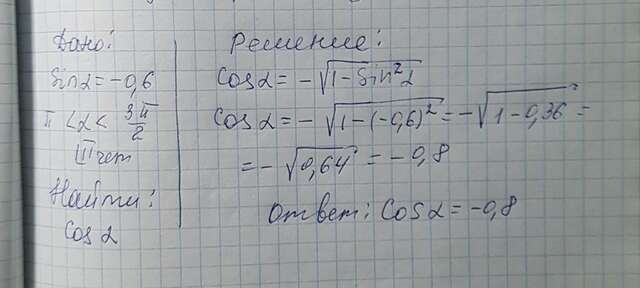 Дано:
Sin α = -0,6
π < α < 3π/2
III чет
Найти:
Cos α
Решение:
Cos α = -√(1-Sin²α)
Cos α = -√(1-(-0,6)²) = -√(1-0,36) =
= -√0,64 = -0,8
Ответ: Cos α = -0,8